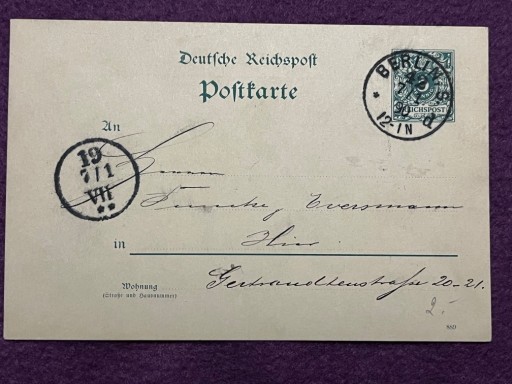 Deutsche Reichspost
Postkarte
BERLIN S
42
7/1
90
12-1N
d
REICHSPOST
An
19
7/1
VII
**
Herrn
Funcke, Eversmann
in
Hier
Wohnung
(Straße und Hausnummer)
Gertraudtenstraße 20-21.
2.-